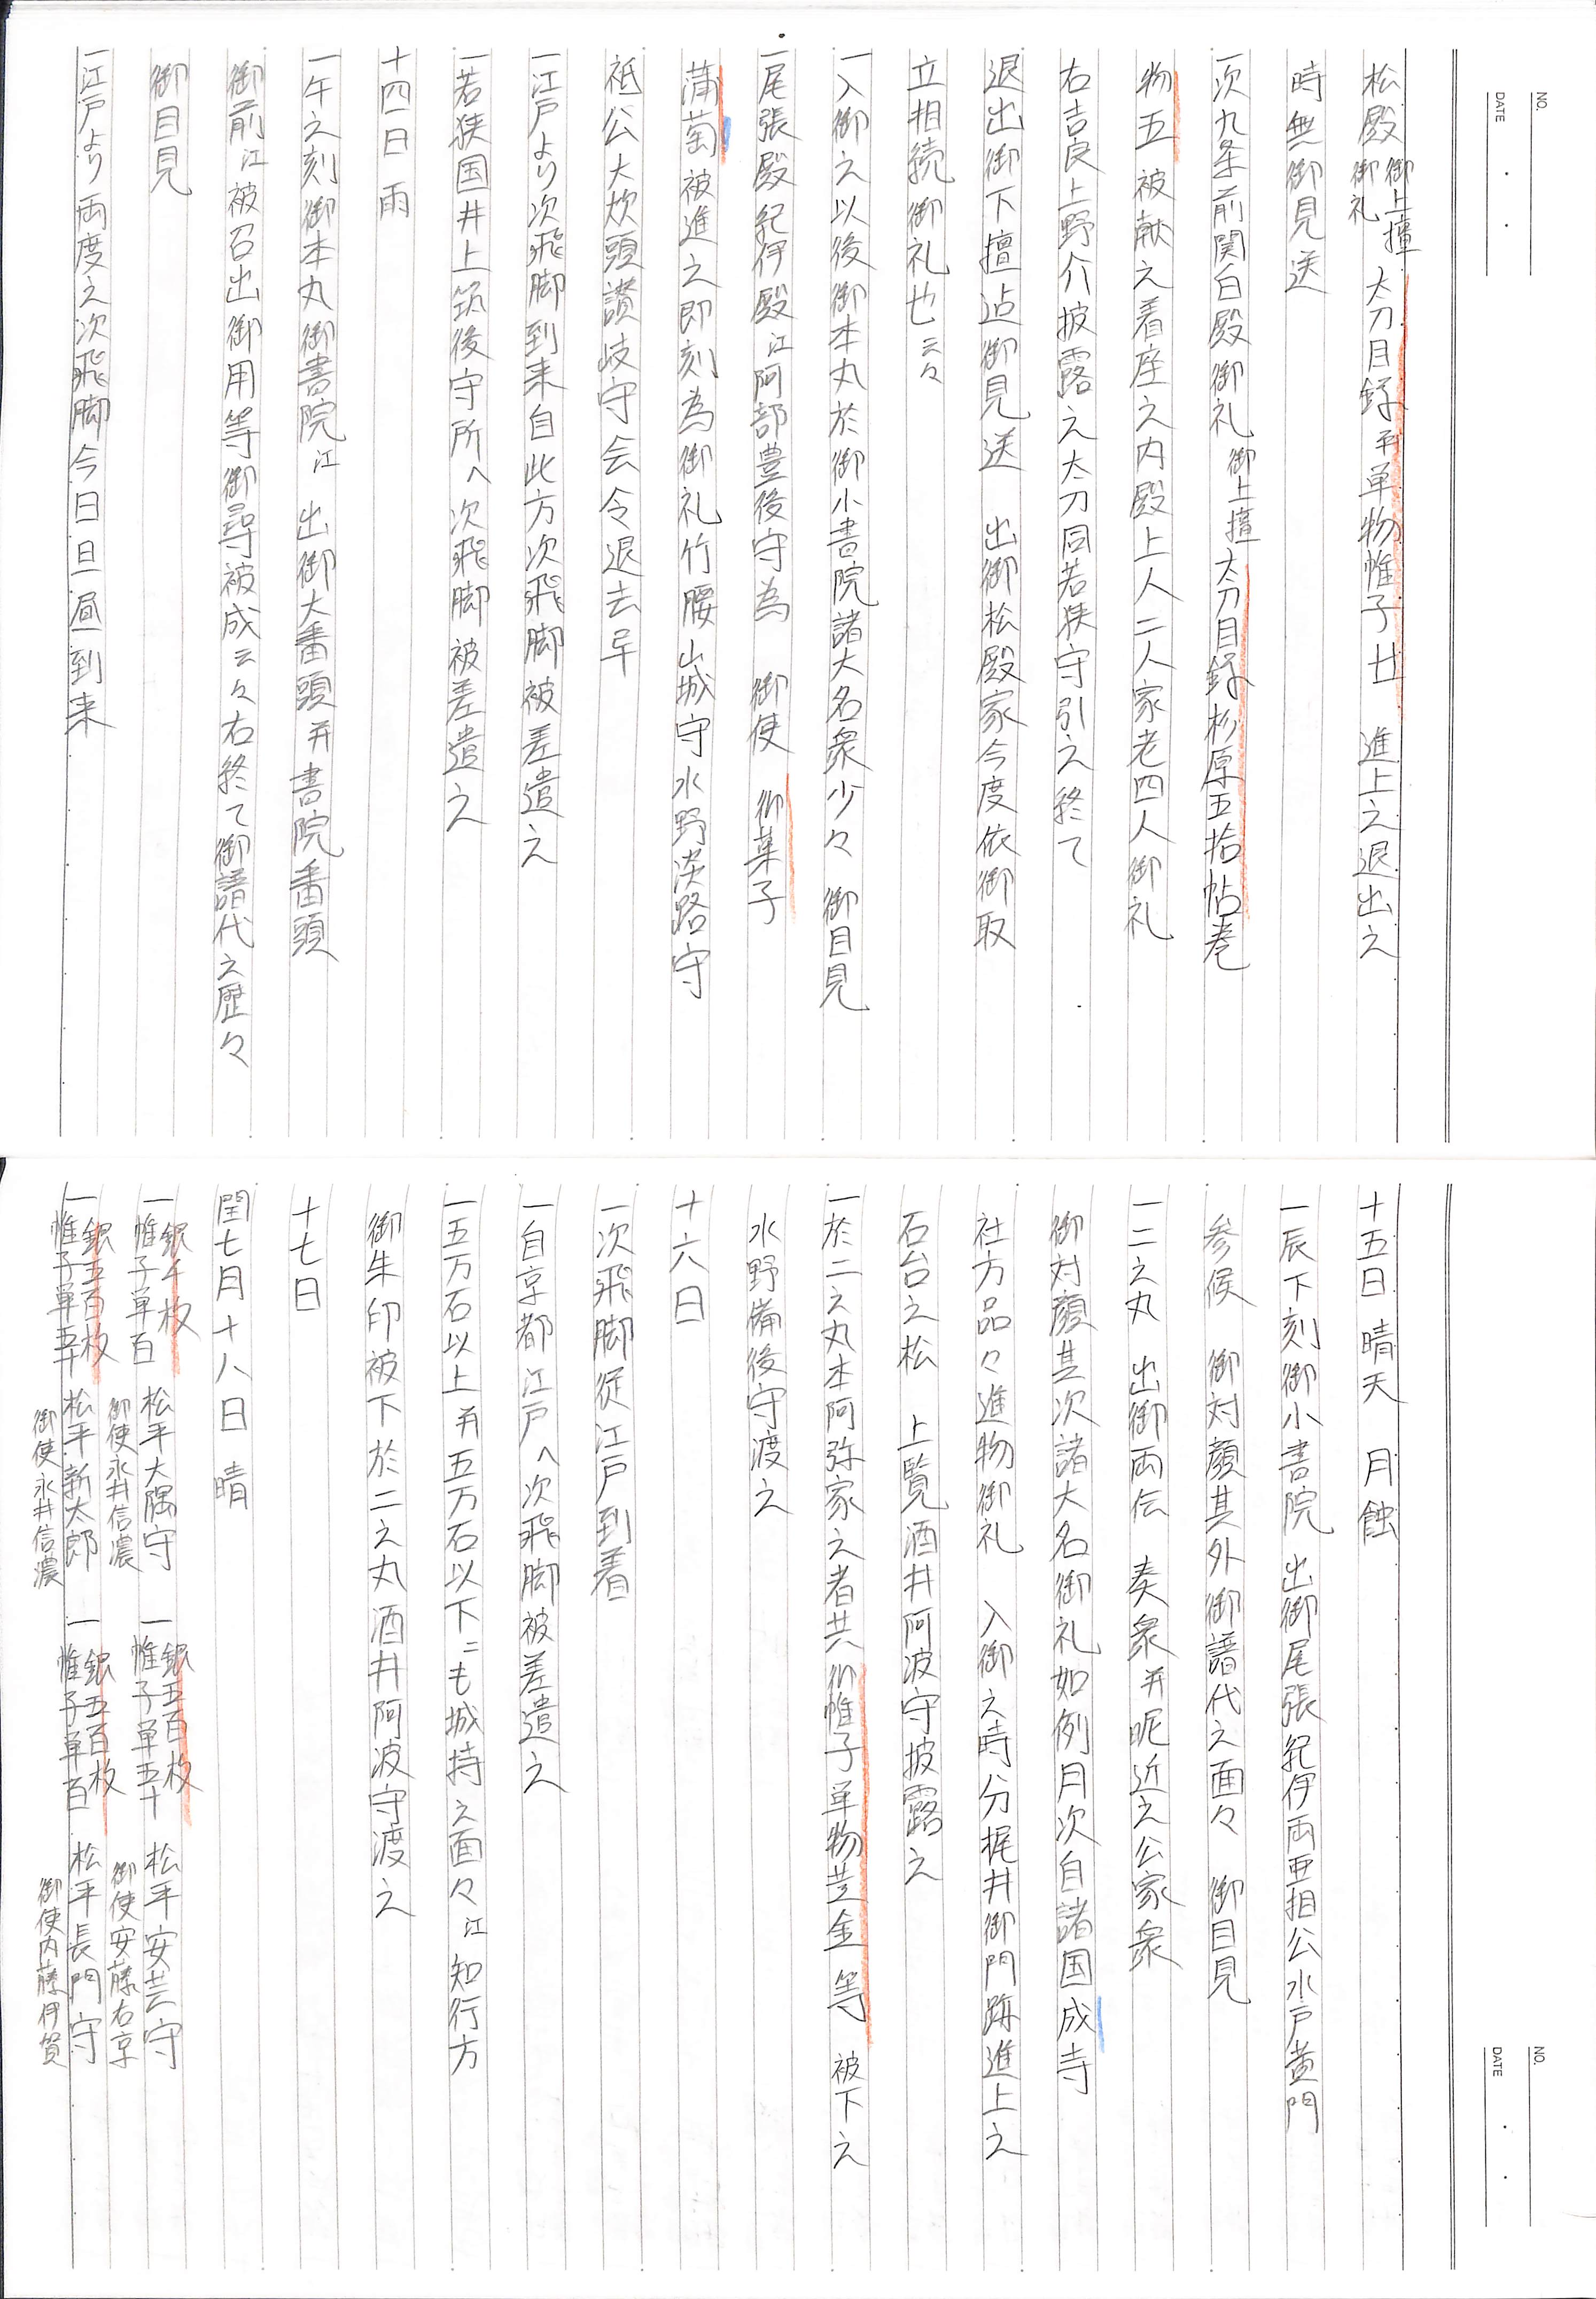 NO.
DATE
松殿 御上壇 御礼 太刀目録并単物帷子廿 進上之退出之
時無御見送
一次九条前関白殿御礼 御上壇 太刀目録杉原五拾帖巻
物五 被献之着座之内殿上人二人家老四人御礼
右吉良上野介披露之太刀同若狭守引之終て
退出御下壇迠御見送 出御松殿家今度依御取
立相続御礼也云々
一入御之以後御本丸於御小書院諸大名衆少々 御目見
一尾張殿紀伊殿江阿部豊後守為 御使 御菓子
蒲萄被進之即刻為御礼竹腰山城守水野淡路守
祗公大炊頭讃岐守会令退去早
一江戸より次飛脚到来自此方次飛脚被差遣之
一若狭国井上筑後守所へ次飛脚被差遣之
十四日 雨
一午之刻御本丸御書院江 出御大番頭并書院番頭
御前江被召出御用等御尋被成云々右終て御譜代之歴々
御目見
一江戸より両度之次飛脚今日旦昼到来
NO.
DATE
十五日 晴天 月蝕
一辰下刻御小書院 出御尾張紀伊両亜相公水戸黄門
参候 御対顔其外御譜代之面々 御目見
一二之丸 出御両伝 奏衆并昵近之公家衆
御対顔其次諸大名御礼如例月次自諸国成寺
社方品々進物御礼 入御之時分梶井御門跡進上之
石台之松 上覧酒井阿波守披露之
一於二之丸本阿弥家之者共御帷子単物並金等 被下之
水野備後守渡之
十六日
一次飛脚従江戸到着
一自京都江戸へ次飛脚被差遣之
一五万石以上并五万石以下ニも城持之面々江知行方
御朱印被下於二之丸酒井阿波守渡之
十七日
閏七月十八日 晴
一 銀千枚 帷子単百 松平大隅守 御使永井信濃
一 銀五百枚 帷子単五十 松平安芸守 御使安藤右京
一 銀五百枚 帷子単五十 松平新太郎 御使永井信濃
一 銀五百枚 帷子単百 松平長門守 御使内藤伊賀